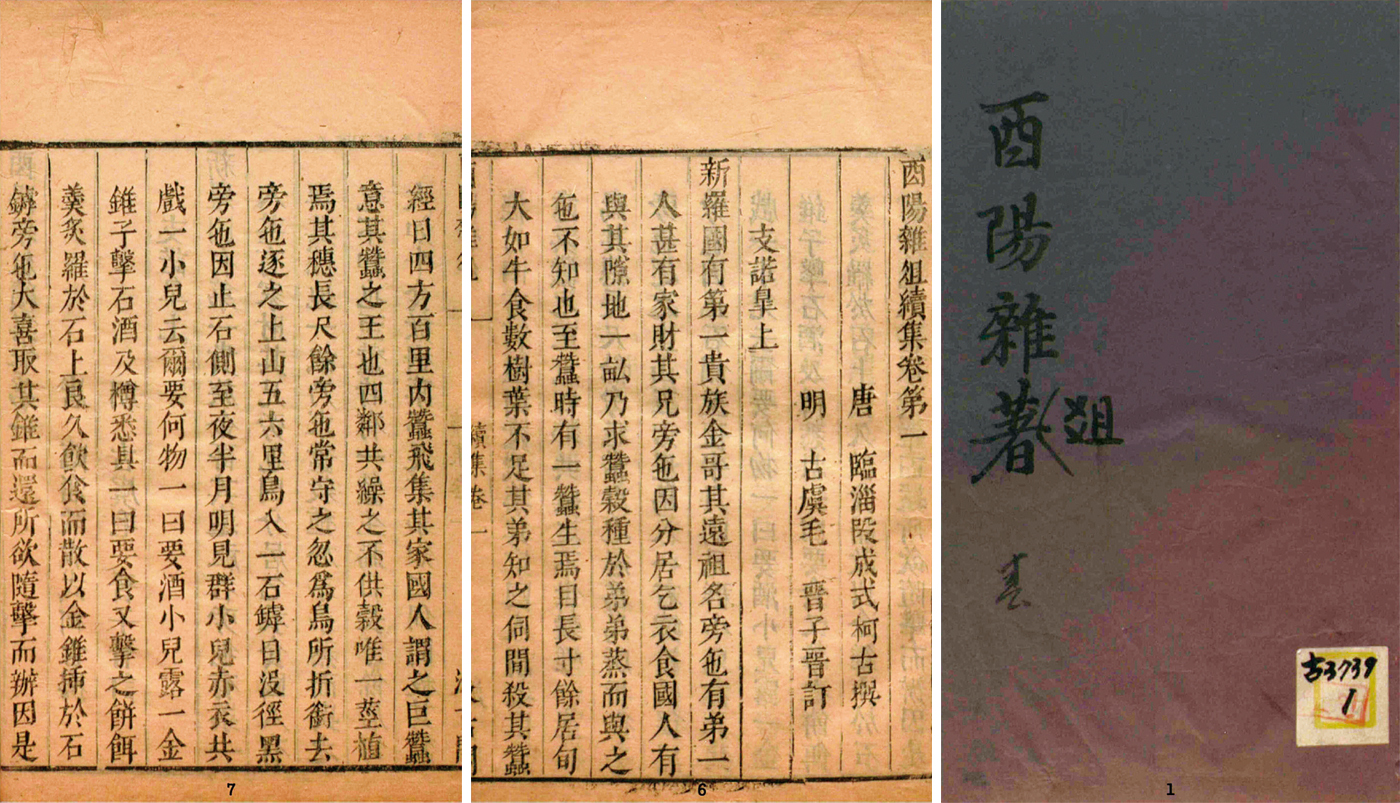 酉陽雜著
俎
春
古3739
1
1
酉陽雜俎續集卷第一
唐 臨淄段成式柯古撰
明 古虞毛 晋子晉訂
支諾皐上
新羅國有第一貴族金哥其遠祖名旁㐌有弟一
人甚有家財其兄旁㐌因分居乞衣食國人有
與其隙地一畝乃求蠶穀種於弟弟蒸而與之
㐌不知也至蠶時有一蠶生焉目長寸餘居旬
大如牛食數樹葉不足其弟知之伺間殺其蠶
續集卷一
6
經日四方百里內蠶飛集其家國人謂之巨蠶
意其蠶之王也四鄰共繰之不供穀唯一莖植
焉其穗長尺餘旁㐌常守之忽爲鳥所折銜去
旁㐌逐之上山五六里鳥入一石罅日没徑黑
旁㐌因止石側至夜半月明見群小兒赤衣共
戲一小兒云爾要何物一曰要酒小兒露一金
錐子擊石酒及樽悉具一曰要食又擊之餅餌
羹炙羅於石上良久飲食而散以金錐揷於石
罅旁㐌大喜取其錐而還所欲隨擊而辦因是
7